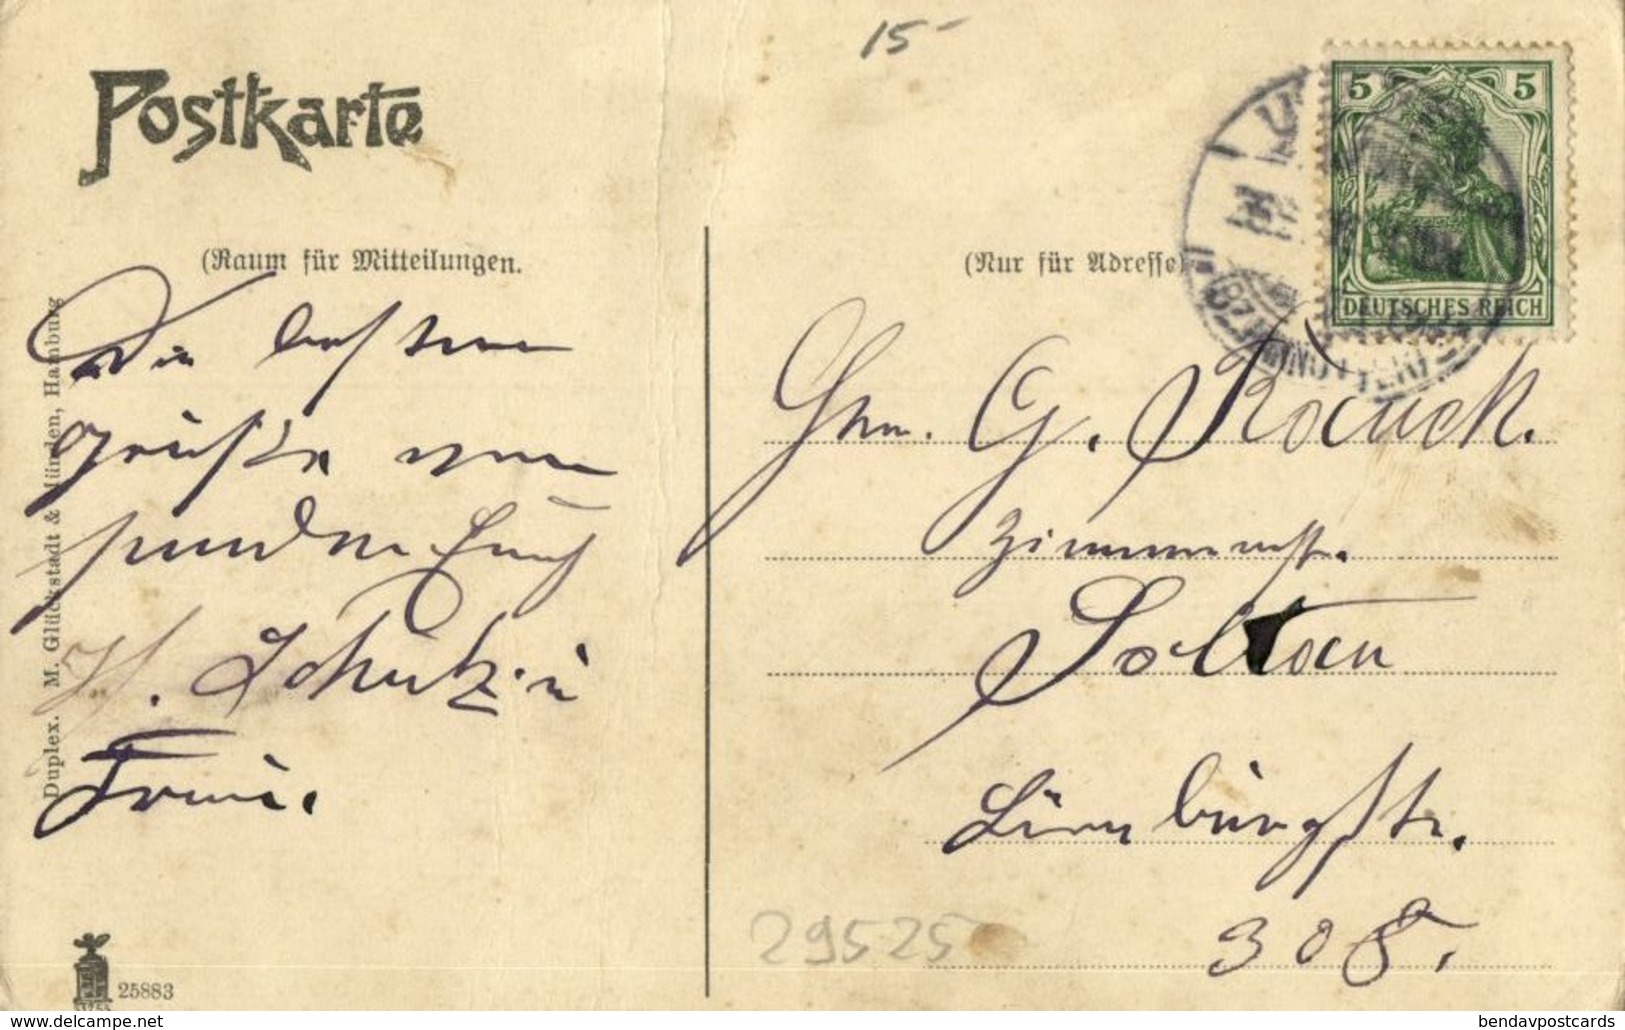 15-
Postkarte
5 5
DEUTSCHES REICH
(Raum für Mitteilungen.
(Nur für Adresse)
Die besten
Grüße von
senden Euch
H. Schulz u
Frau.
Hrn. G. Rocück.
Zimmermstr.
Soltau
Lünebürgstr.
308.
Duplex. M. Glückstadt & Münden, Hamburg
29525
25883
delcampe.net
bendavpostcards